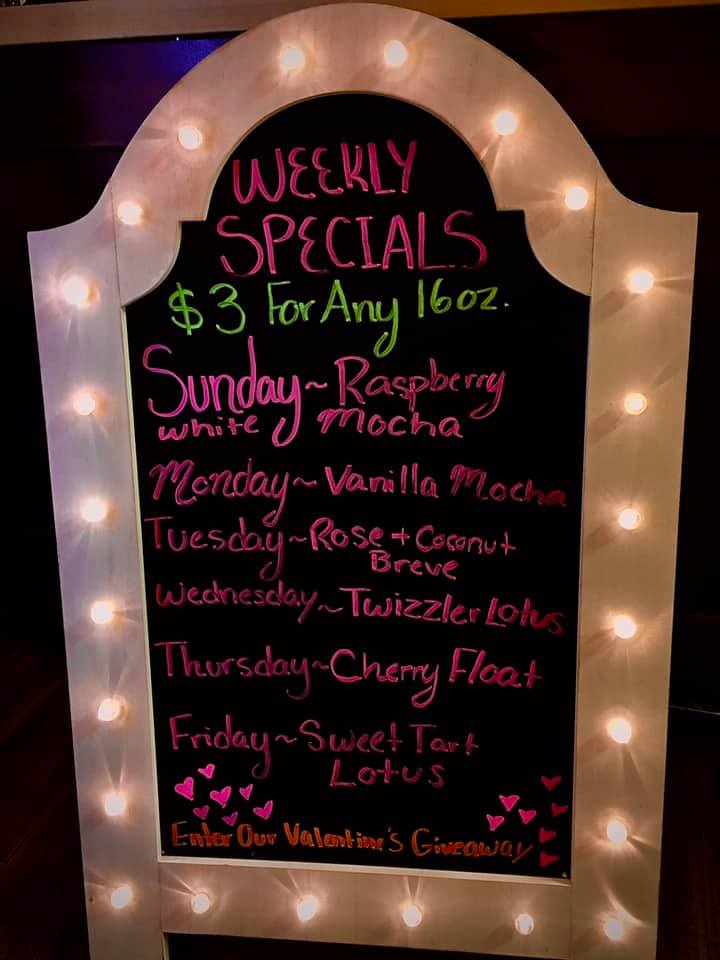 WEEKLY
SPECIALS
$3 For Any 16oz.
Sunday~Raspberry
white Mocha
Monday~Vanilla Mocha
Tuesday~Rose + Coconut
Breve
Wednesday~Twizzler Lotus
Thursday~Cherry Float
Friday~Sweet Tart
Lotus
Enter Our Valentine's Giveaway